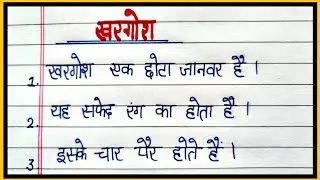 खरगोश
1. खरगोश एक छोटा जानवर है ।
2. यह सफेद रंग का होता है ।
3. इसके चार पैर होते हैं ।